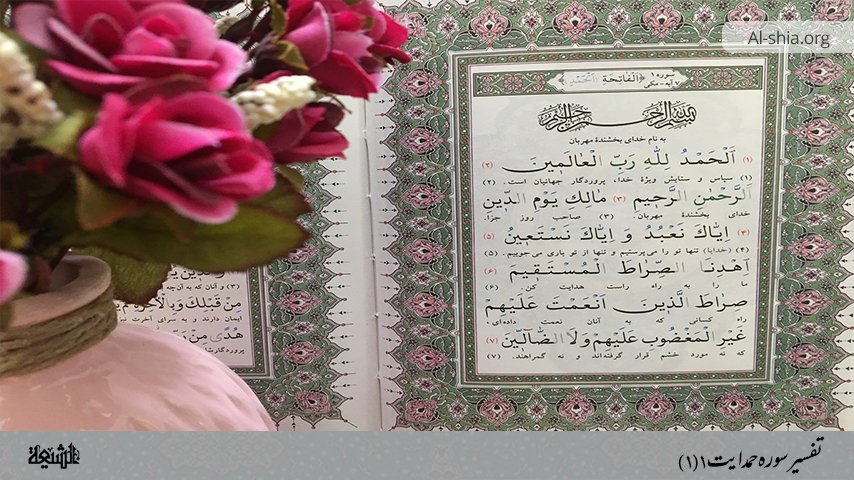 Al-shia.org
سوره ۱ ﴿اَلْفَاتِحَةِ (اَلْحَمْدِ)﴾ ۷ آیه-مکی
بسم الله الرحمن الرحیم
به نام خدای بخشندهٔ مهربان
(۱) اَلْحَمْدُ لِلّٰهِ رَبِّ الْعَالَمٖینَ (۲)
(۱) سپاس و ستایش ویژهٔ خدا، پروردگار جهانیان است. (۲)
اَلرَّحْمٰنِ الرَّحٖیمِ (۳) مَالِكِ يَوْمِ الدّٖینِ
خدای بخشندهٔ مهربان. (۳) صاحب روز جزا.
(۴) اِيَّاكَ نَعْبُدُ وَ اِيَّاكَ نَسْتَعٖینُ (۵)
(۴) (خدایا) تنها تو را می‌پرستیم و تنها از تو یاری می‌جوییم. (۵)
اِهْدِنَا الصِّرَاطَ الْمُسْتَقٖیمَ (۶)
ما را به راه راست هدایت کن. (۶)
صِرَاطَ الَّذٖینَ اَنْعَمْتَ عَلَيْهِمْ
راه کسانی که به آنان نعمت داده‌ای
غَيْرِ الْمَغْضُوبِ عَلَيْهِمْ وَلَا الضَّالّٖینَ (۷)
که نه مورد خشم قرار گرفته‌اند و نه گمراهند. (۷)
(۳) و آنان که به آن‌چه
مِنْ قَبْلِكَ وَبِالْاٰخِرَةِ هُمْ
ایمان دارند و به سرای آخرت
هُدًى مِنْ
الشیعة
تفسیر سوره حمد ایت۱ (۱)